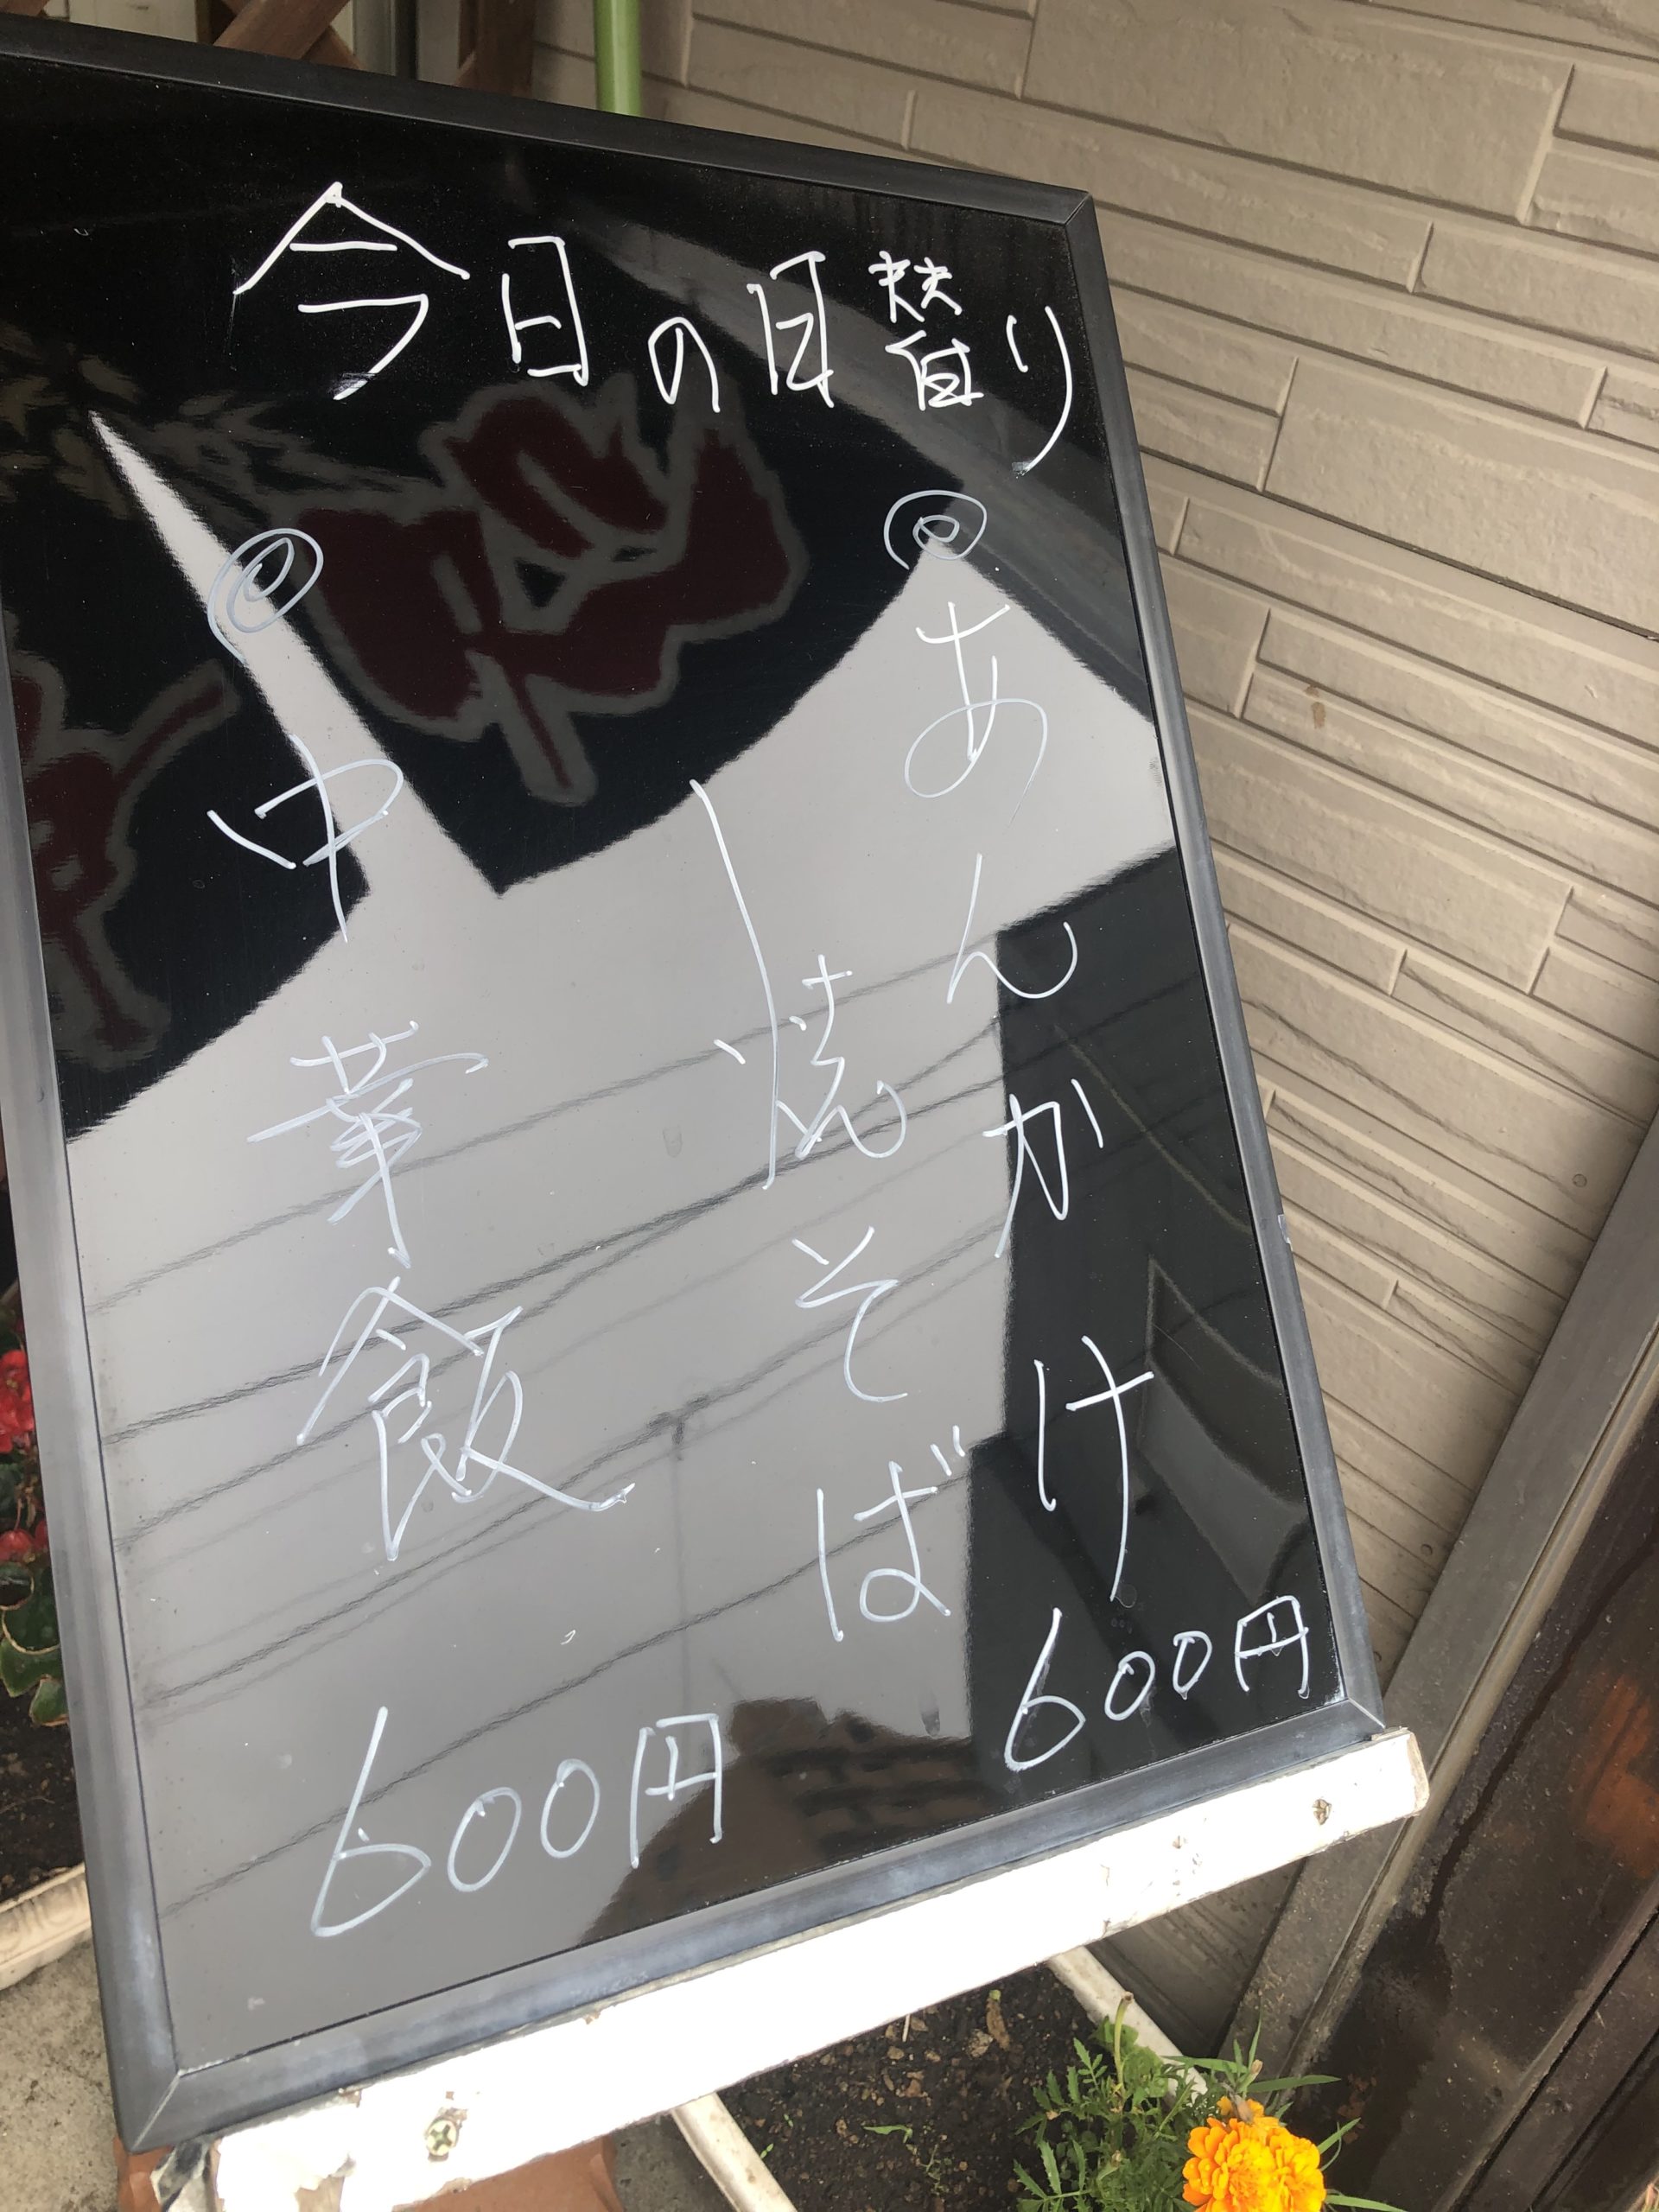 今日の日替り
◎あんかけ
焼そば
600円
◎中華飯
600円